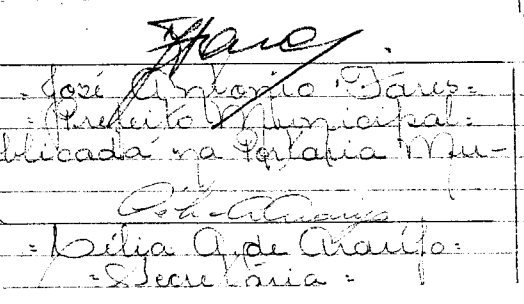 = José Antonio Fares =
= Prefeito Municipal =
blicada na Portaria Mu-
= Célia A. de Araújo =
= Secretária =